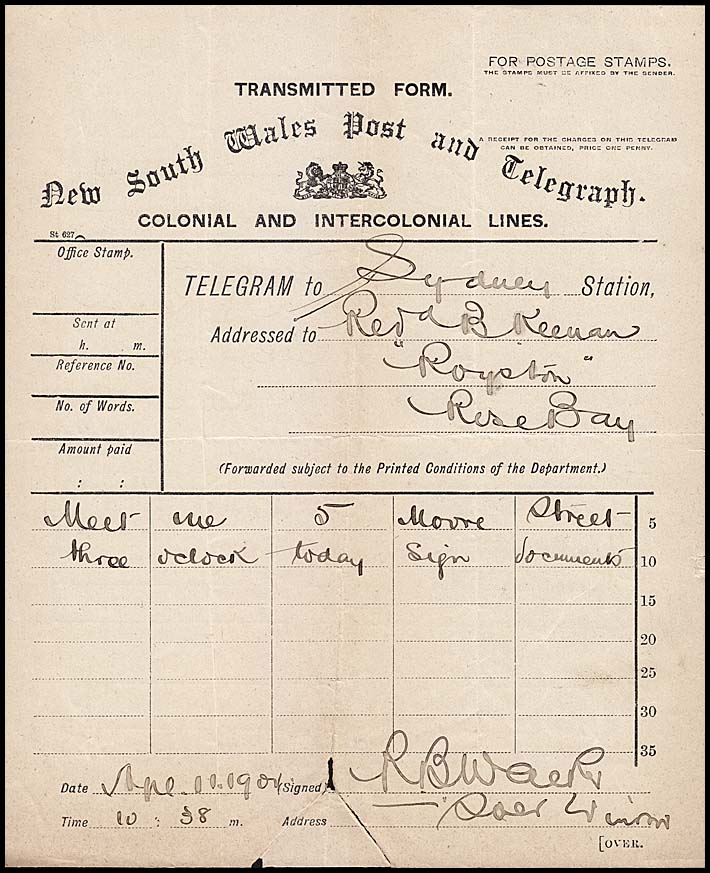 FOR POSTAGE STAMPS.
THE STAMPS MUST BE AFFIXED BY THE SENDER.
TRANSMITTED FORM.
A RECEIPT FOR THE CHARGES ON THIS TELEGRAM
CAN BE OBTAINED, PRICE ONE PENNY.
New South Wales Post and Telegraph.
COLONIAL AND INTERCOLONIAL LINES.
St 627
Office Stamp.
TELEGRAM to Sydney Station,
Sent at
h. m.
Addressed to Revd B Keenan
Reference No.
"Royston"
No. of Words.
Rose Bay
Amount paid
: :
(Forwarded subject to the Printed Conditions of the Department.)
Meet me 5 Moore Street 5
three oclock today sign documents 10
15
20
25
30
35
Date 11.1904 (Signed)
Time 10 : 38 m. Address
[OVER.